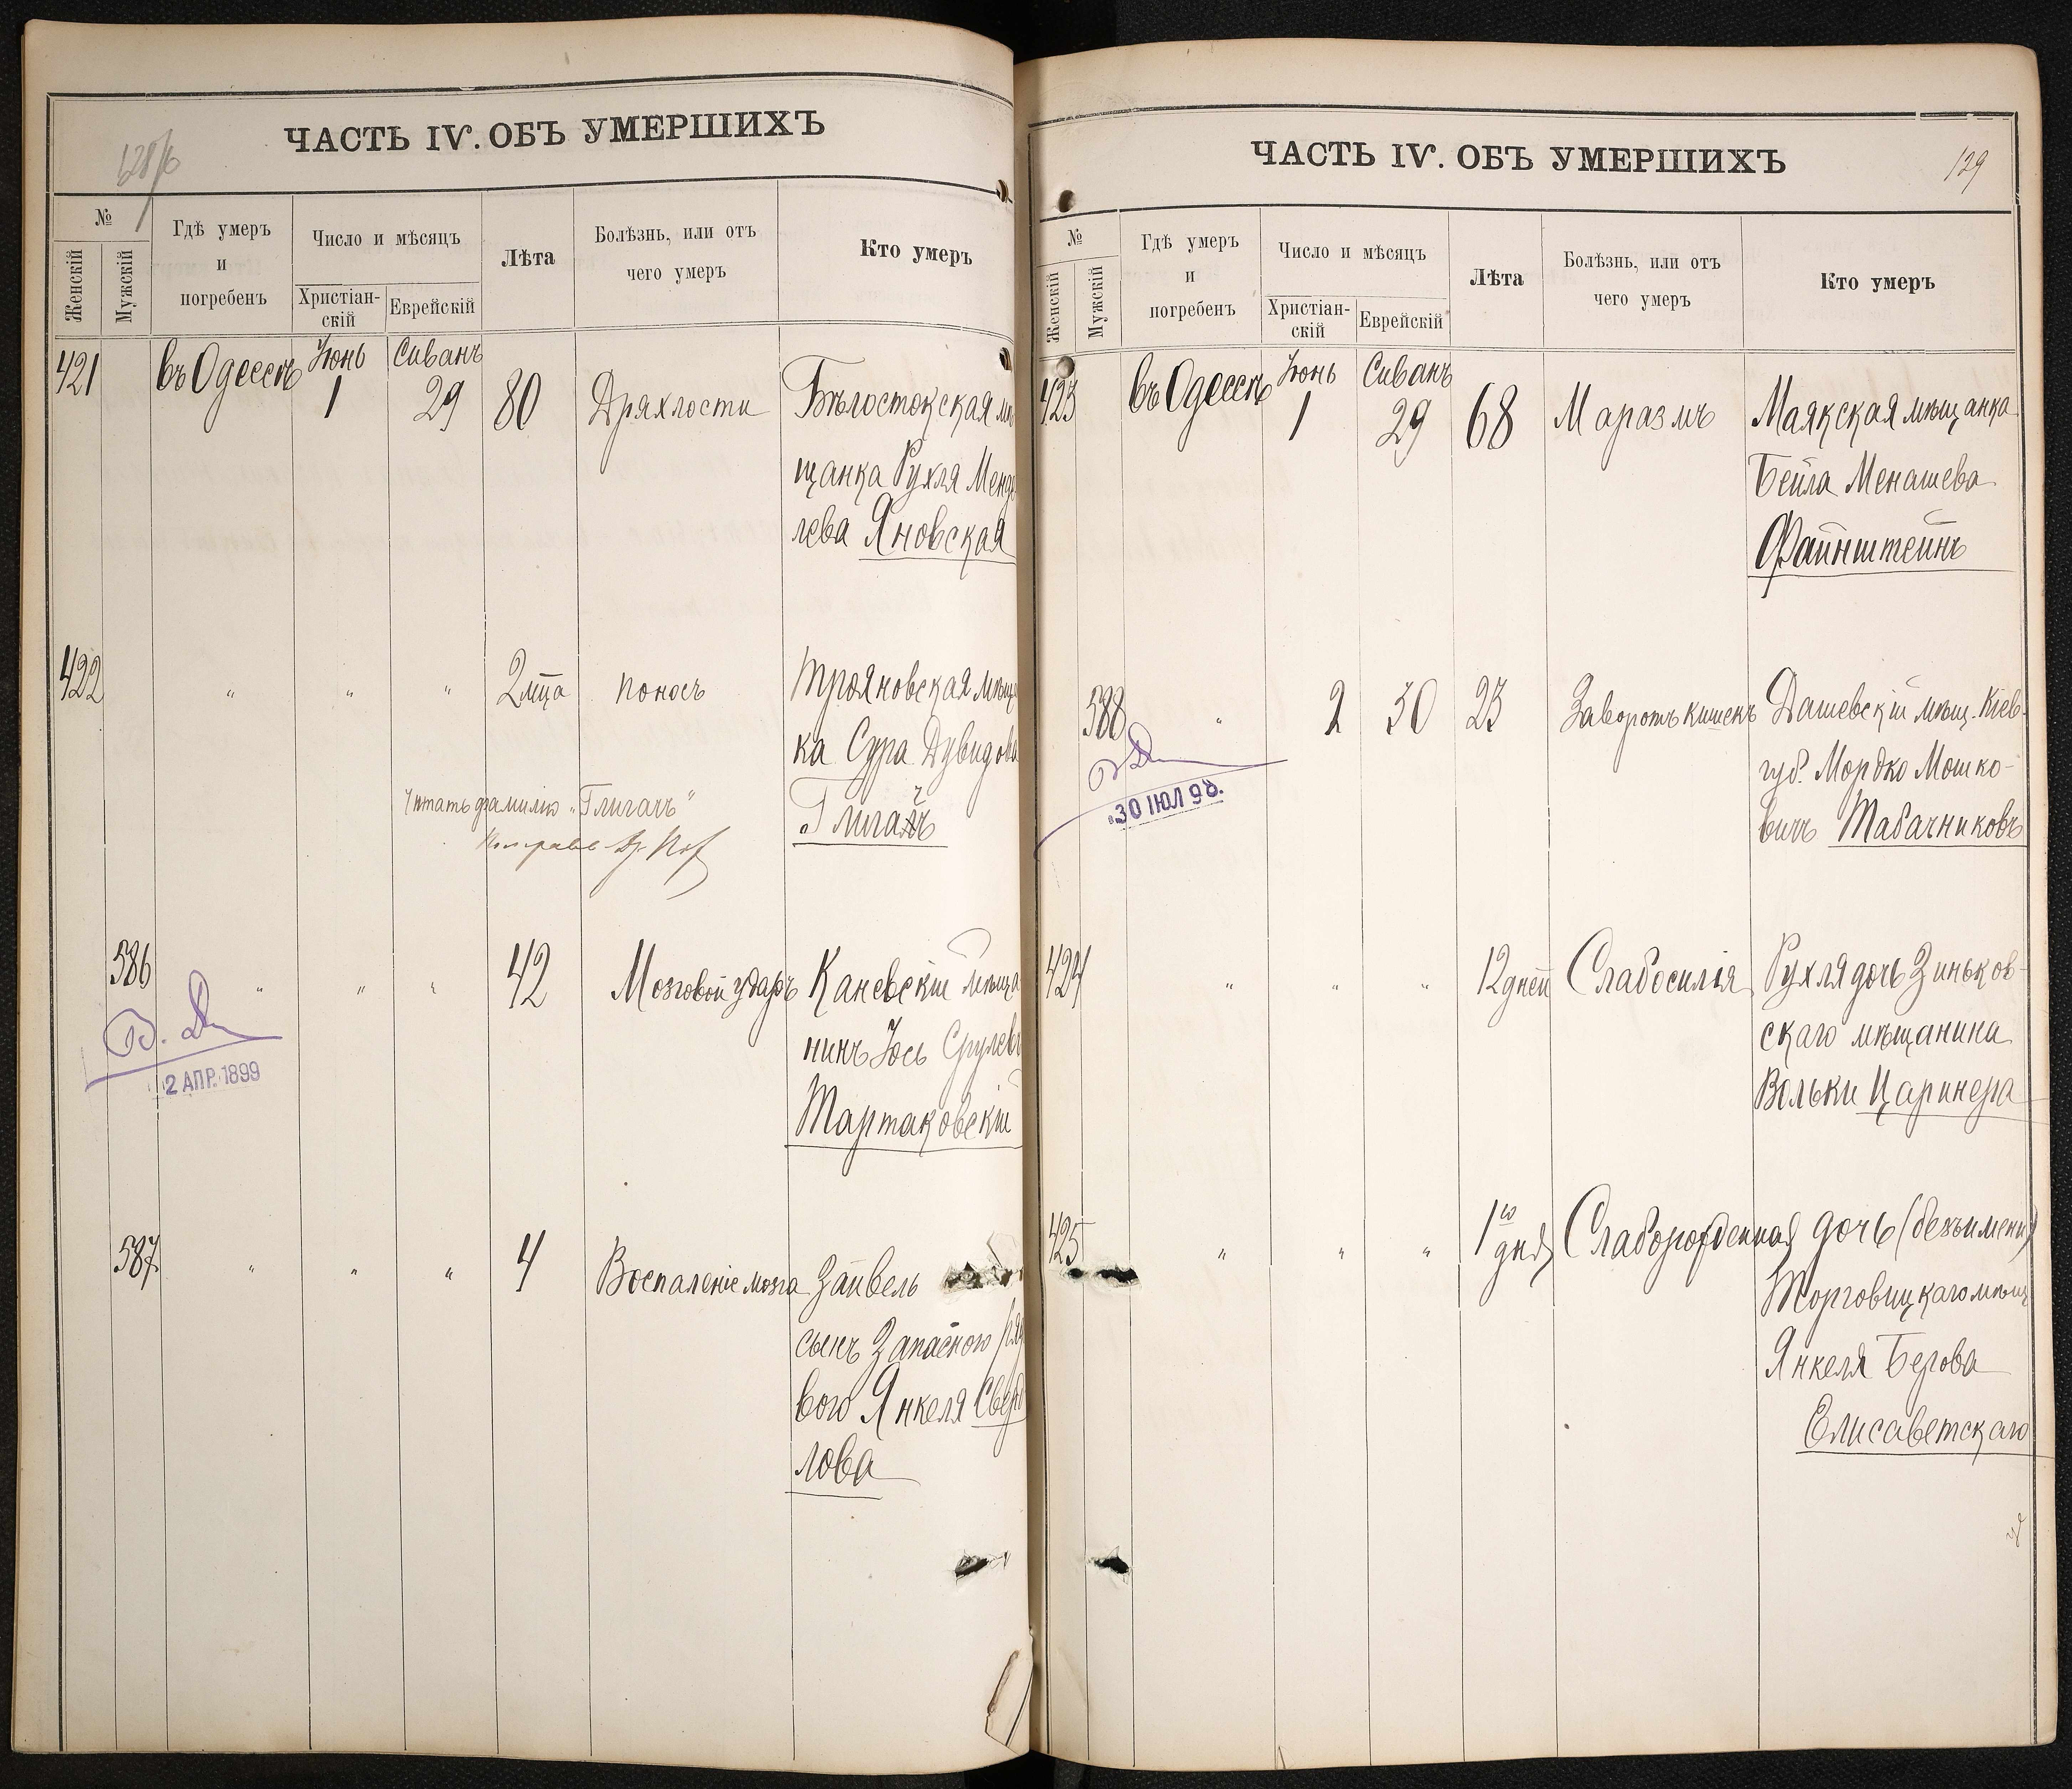 128/б
ЧАСТЬ IV. ОБЪ УМЕРШИХЪ
№
Женскій
Мужскій
Гдѣ умеръ
и
погребенъ
Число и мѣсяцъ
Христіан-
скій
Еврейскій
Лѣта
Болѣзнь, или отъ
чего умеръ
Кто умеръ
421 въ Одессѣ Іюнь 1 Сиванъ 29 80 Дряхлости Бѣлостокская мѣ
щанка Рухля Менде
лева Яновская
422 " " " 2 мца поносъ Трояновская мѣщ
ка Сура Дувидова
Глигачъ
Читать фамилію „Глигачъ"
586 " " " 42 Мозговой ударъ Каневскій мѣща
нинъ Іось Срулев
Тартаковскій
2 АПР. 1899
587 " " " 4 Воспаленіе мозга Зайвель
сынъ Запасного ряд
вого Янкеля Сверд
лова
129
ЧАСТЬ IV. ОБЪ УМЕРШИХЪ
№
Женскій
Мужскій
Гдѣ умеръ
и
погребенъ
Число и мѣсяцъ
Христіан-
скій
Еврейскій
Лѣта
Болѣзнь, или отъ
чего умеръ
Кто умеръ
423 въ Одессѣ Іюнь 1 Сиванъ 29 68 Маразмъ Маякская мѣщанка
Бейла Менашева
Файнштейнъ
588 " 2 30 23 Заворотъ кишекъ Дашевскій мѣщ. Кіев.
губ. Мордко Мошко-
вичъ Табачниковъ
30 ІЮЛ 98.
424 " " " 12 дней Слабосилія Рухля дочь Зиньков-
скаго мѣщанина
Вольки Царинера
425 " " " 1го дня Слаборожденная дочь (безъ имени)
Торговицкаго мѣщ
Янкеля Берова
Елисаветскаго